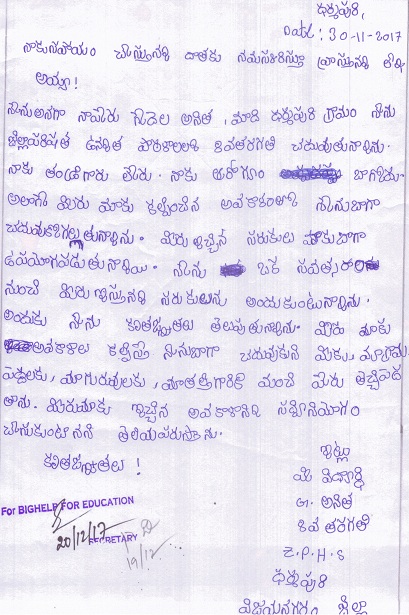 ధర్మపురి,
Date : 30-11-2017
నాకు సహాయం చేస్తున్నన్న దాతకు నమస్కరిస్తూ వ్రాస్తున్నన్న లేఖ
అయ్యా!
నేను అనగా నా పేరు గేదెల అనిత, మాది ధర్మపురి గ్రామం నేను
జిల్లాపరిషత్ ఉన్నత పాఠశాలలో 8వ తరగతి చదువుతున్నాను.
నాకు తండ్రిగారు లేరు. నాకు ఆరోగ్యం బాగాలేదు.
అలాగే మీరు మాకు కల్పించిన అవకాశంతో నేను బాగా
చదువుకోగల్గుతున్నాను. మీరు ఇచ్చిన సరుకులు మాకు బాగా
ఉపయోగపడుతున్నాయి. నేను ఒక సంవత్సరం
నుంచి మీరు ఇస్తున్న సరుకులును అందుకుంటున్నాను.
అందుకు నేను కృతజ్ఞతలు తెలుపుతున్నాను. మీరు మాకు
అవకాశాలు కల్పిస్తే నేను బాగా చదువుకుని మీకు, మా గ్రామ
పెద్దలకు, మా గురువులకు, మా తల్లిగారికి మంచి పేరు తెచ్చిపెడ
తాను. మీరు మాకు ఇచ్చిన అవకాశాన్ని సద్వినియోగం
చేసుకుంటానని తెలియపరుస్తాను.
కృతజ్ఞతలు !
ఇట్లు
మీ విద్యార్థి
G. అనిత
8వ తరగతి
Z.P.H.S
ధర్మపురి
విజయనగరం జిల్లా
For BIGHELP FOR EDUCATION
20/12/17
SECRETARY
19/12